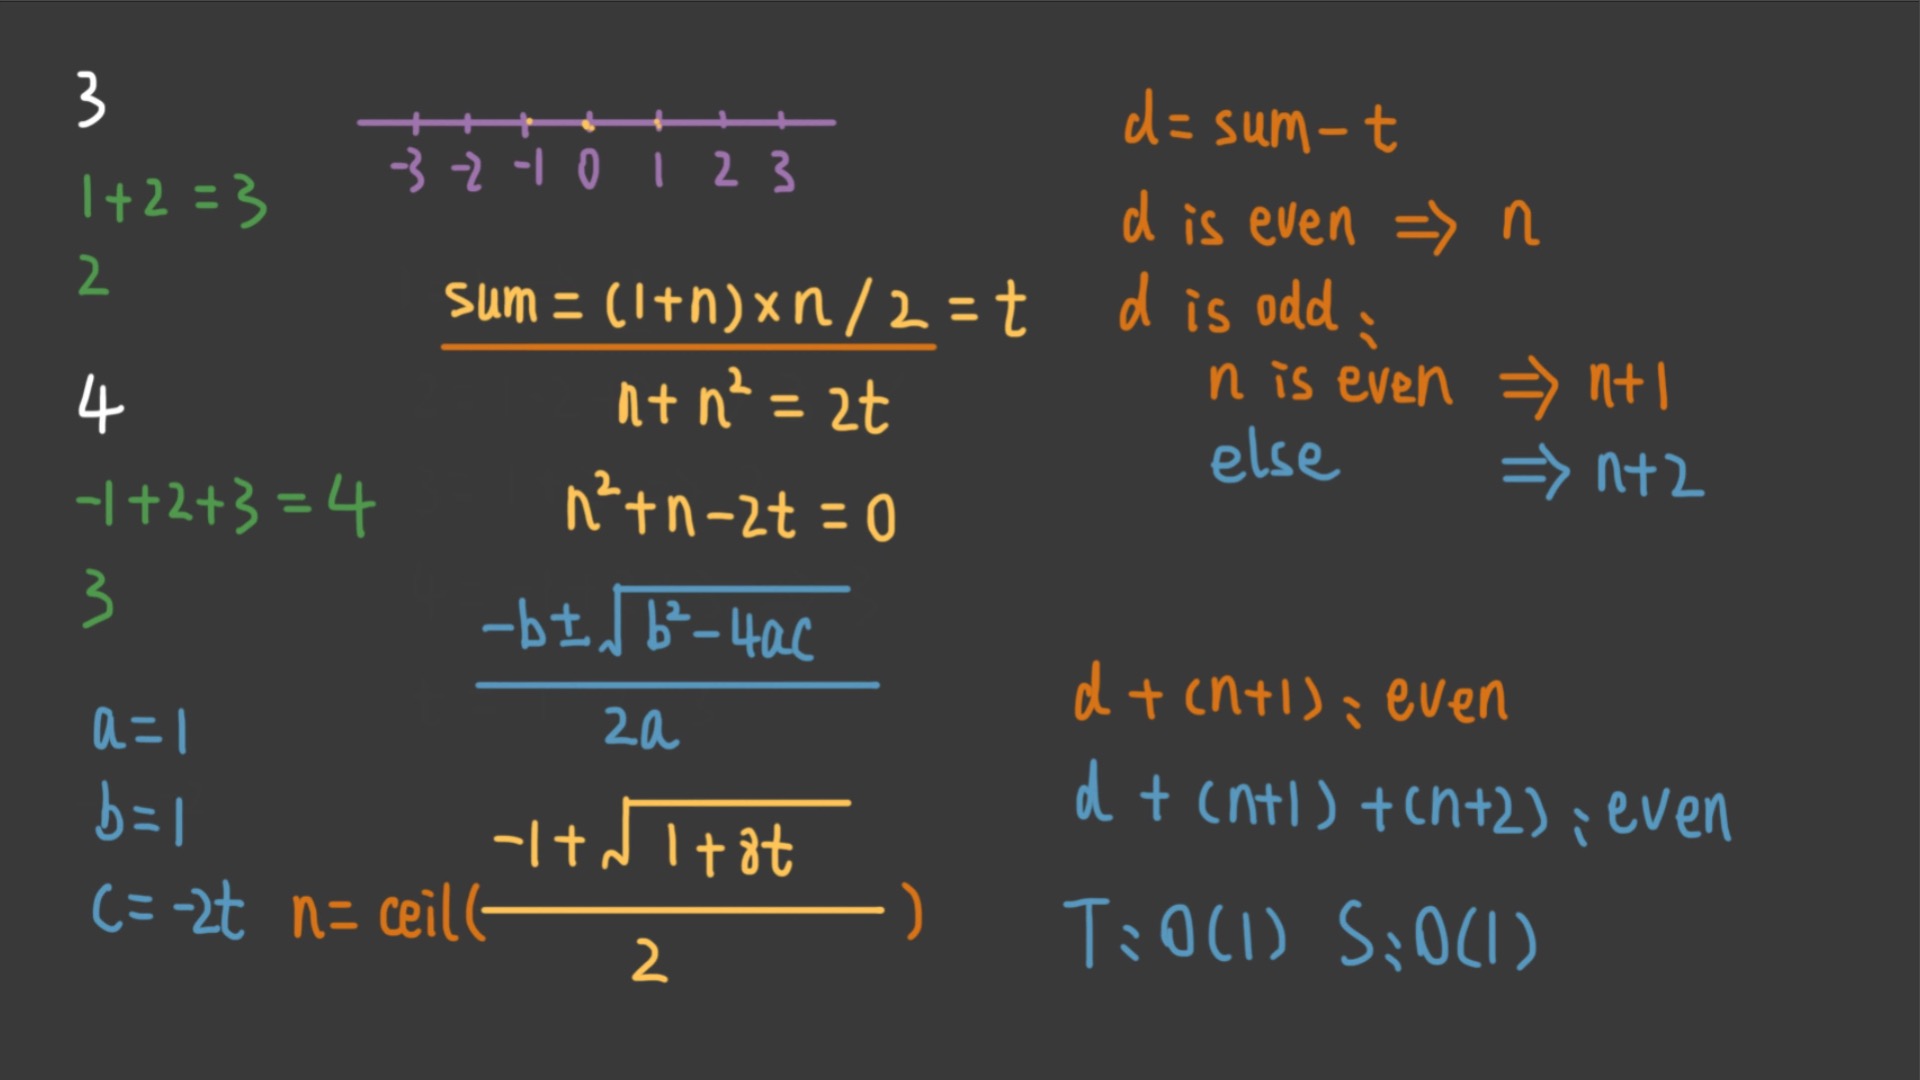 3
1+2=3
2
4
-1+2+3=4
3
a=1
b=1
c=-2t
-3 -2 -1 0 1 2 3
sum=(1+n)×n/2=t
n+n²=2t
n²+n-2t=0
-b±√b²-4ac
2a
-1+√1+8t
n=ceil( )
2
d=sum-t
d is even ⇒ n
d is odd:
n is even ⇒ n+1
else ⇒ n+2
d+(n+1): even
d+(n+1)+(n+2): even
T:O(1) S:O(1)